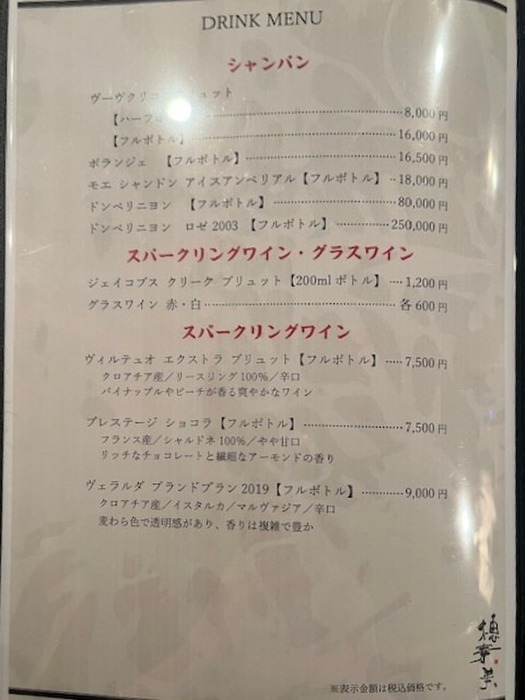 DRINK MENU
シャンパン
ヴーヴクリコ ブリュット
【ハーフボトル】 8,000円
【フルボトル】 16,000円
ボランジェ 【フルボトル】 16,500円
モエ シャンドン アイスアンペリアル【フルボトル】 18,000円
ドンペリニヨン 【フルボトル】 80,000円
ドンペリニヨン ロゼ 2003 【フルボトル】 250,000円
スパークリングワイン・グラスワイン
ジェイコブス クリーク ブリュット【200ml ボトル】 1,200円
グラスワイン 赤・白 各 600円
スパークリングワイン
ヴィルテュオ エクストラ ブリュット【フルボトル】 7,500円
クロアチア産／リースリング 100％／辛口
パイナップルやピーチが香る爽やかなワイン
プレステージ ショコラ【フルボトル】 7,500円
フランス産／シャルドネ 100％／やや甘口
リッチなチョコレートと繊細なアーモンドの香り
ヴェラルダ ブランドブラン 2019【フルボトル】 9,000円
クロアチア産／イスタルカ／マルヴァジア／辛口
麦わら色で透明感があり、香りは複雑で豊か
※表示金額は税込価格です。